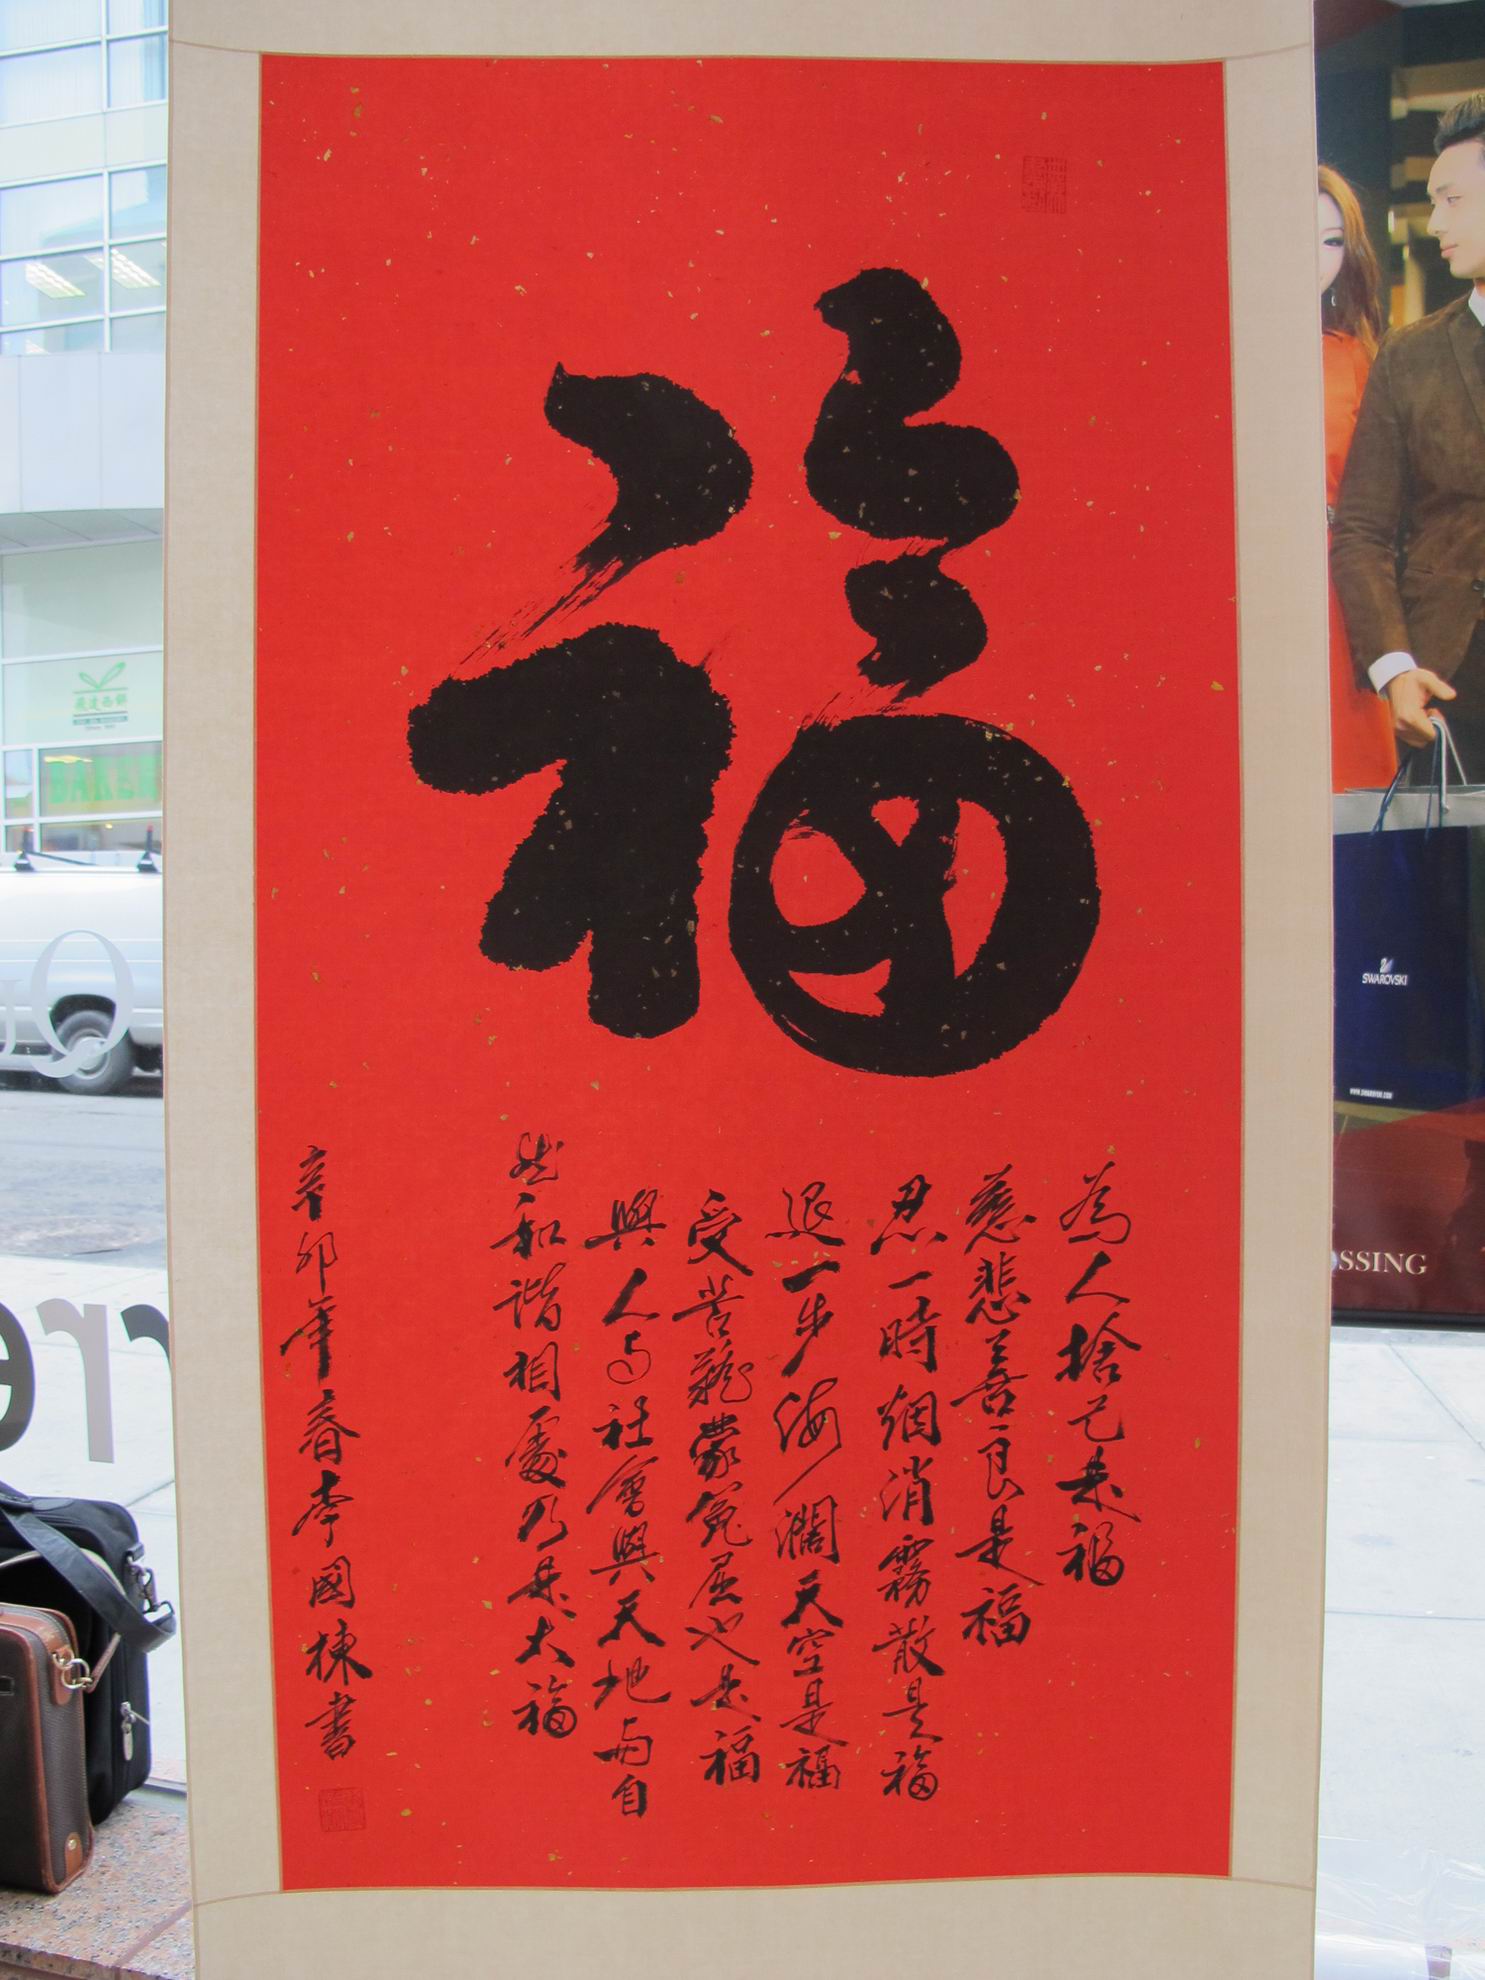 福
為人捨己來福
慈悲善良是福
忍一時烟消霧散是福
退一步海濶天空是福
受苦難蒙冤屈也是福
與人与社會與天地与自
然和谐相處乃是大福
辛卯年春李國棟書
飛達西餅
SWAROVSKI
WWW.SWAROVSKI.COM
OSSING